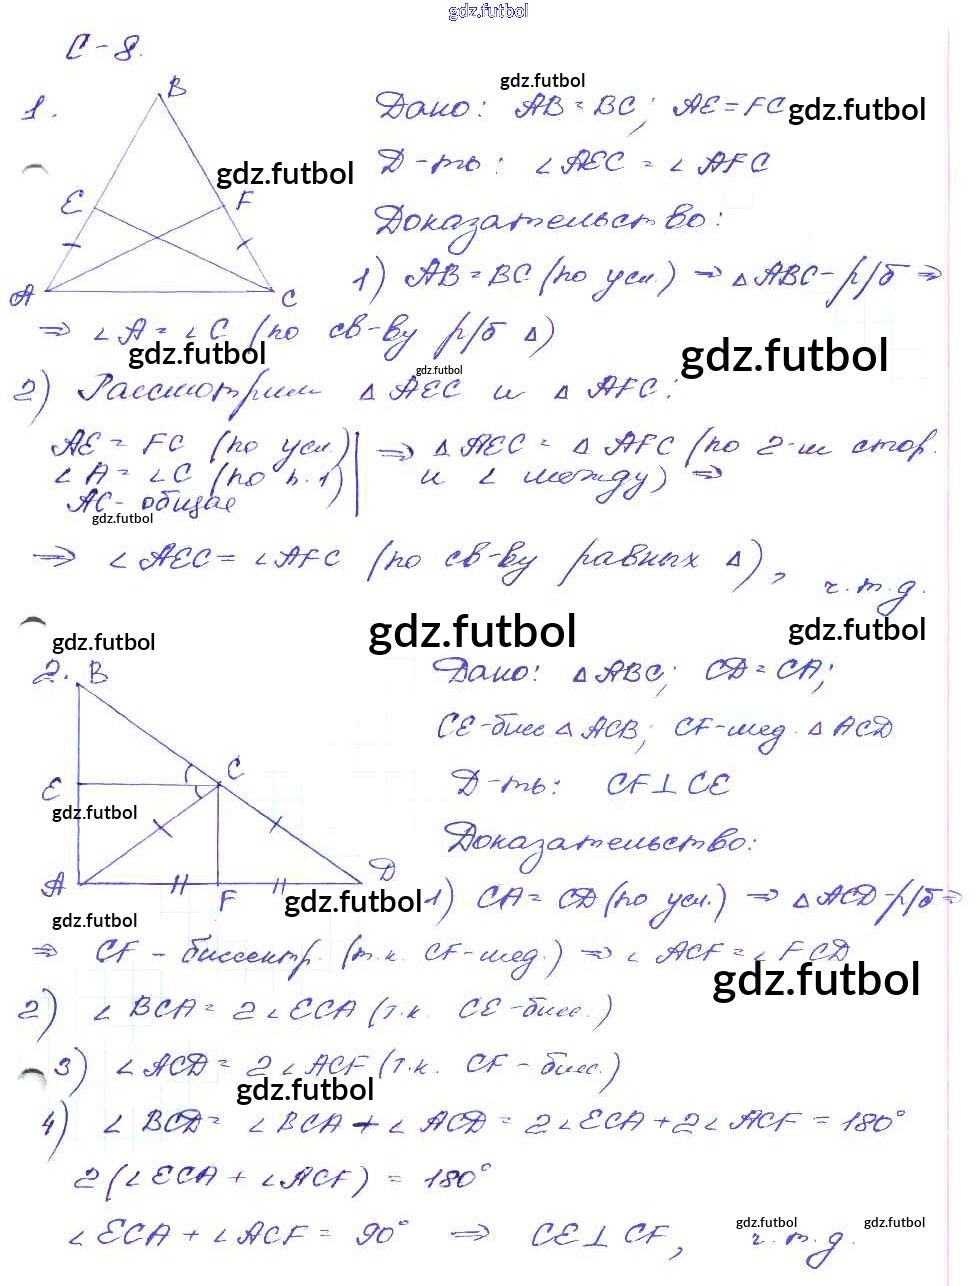 gdz.futbol
С-8.
gdz.futbol
1.
B
Дано: AB = BC; AE = FC gdz.futbol
gdz.futbol
Д-ть: ∠AEC = ∠AFC
E F
Доказательство:
A C
1) AB = BC (по усл.) ⇒ △ABC - р/б ⇒
⇒ ∠A = ∠C (по св-ву р/б △)
gdz.futbol gdz.futbol
gdz.futbol
2) Рассмотрим △AEC и △AFC:
AE = FC (по усл.) | ⇒ △AEC = △AFC (по 2-м стор.
∠A = ∠C (по п.1) | и ∠ между) ⇒
AC - общая
gdz.futbol
⇒ ∠AEC = ∠AFC (по св-ву равных △),
ч.т.д.
gdz.futbol gdz.futbol gdz.futbol
2. B
Дано: △ABC; CD = CA;
CE - бисс. △ACB; CF - мед. △ACD
E C
Д-ть: CF ⊥ CE
gdz.futbol
Доказательство:
A F D
gdz.futbol gdz.futbol
1) CA = CD (по усл.) ⇒ △ACD - р/б ⇒
⇒ CF - биссектр. (т.к. CF - мед.) ⇒ ∠ACF = ∠FCD
gdz.futbol
2) ∠BCA = 2∠ECA (т.к. CE - бисс.)
3) ∠ACD = 2∠ACF (т.к. CF - бисс.)
gdz.futbol
4) ∠BCD = ∠BCA + ∠ACD = 2∠ECA + 2∠ACF = 180°
2(∠ECA + ∠ACF) = 180°
∠ECA + ∠ACF = 90° ⇒ CE ⊥ CF, ч.т.д.
gdz.futbol gdz.futbol